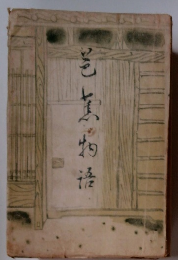 芭蕉物語